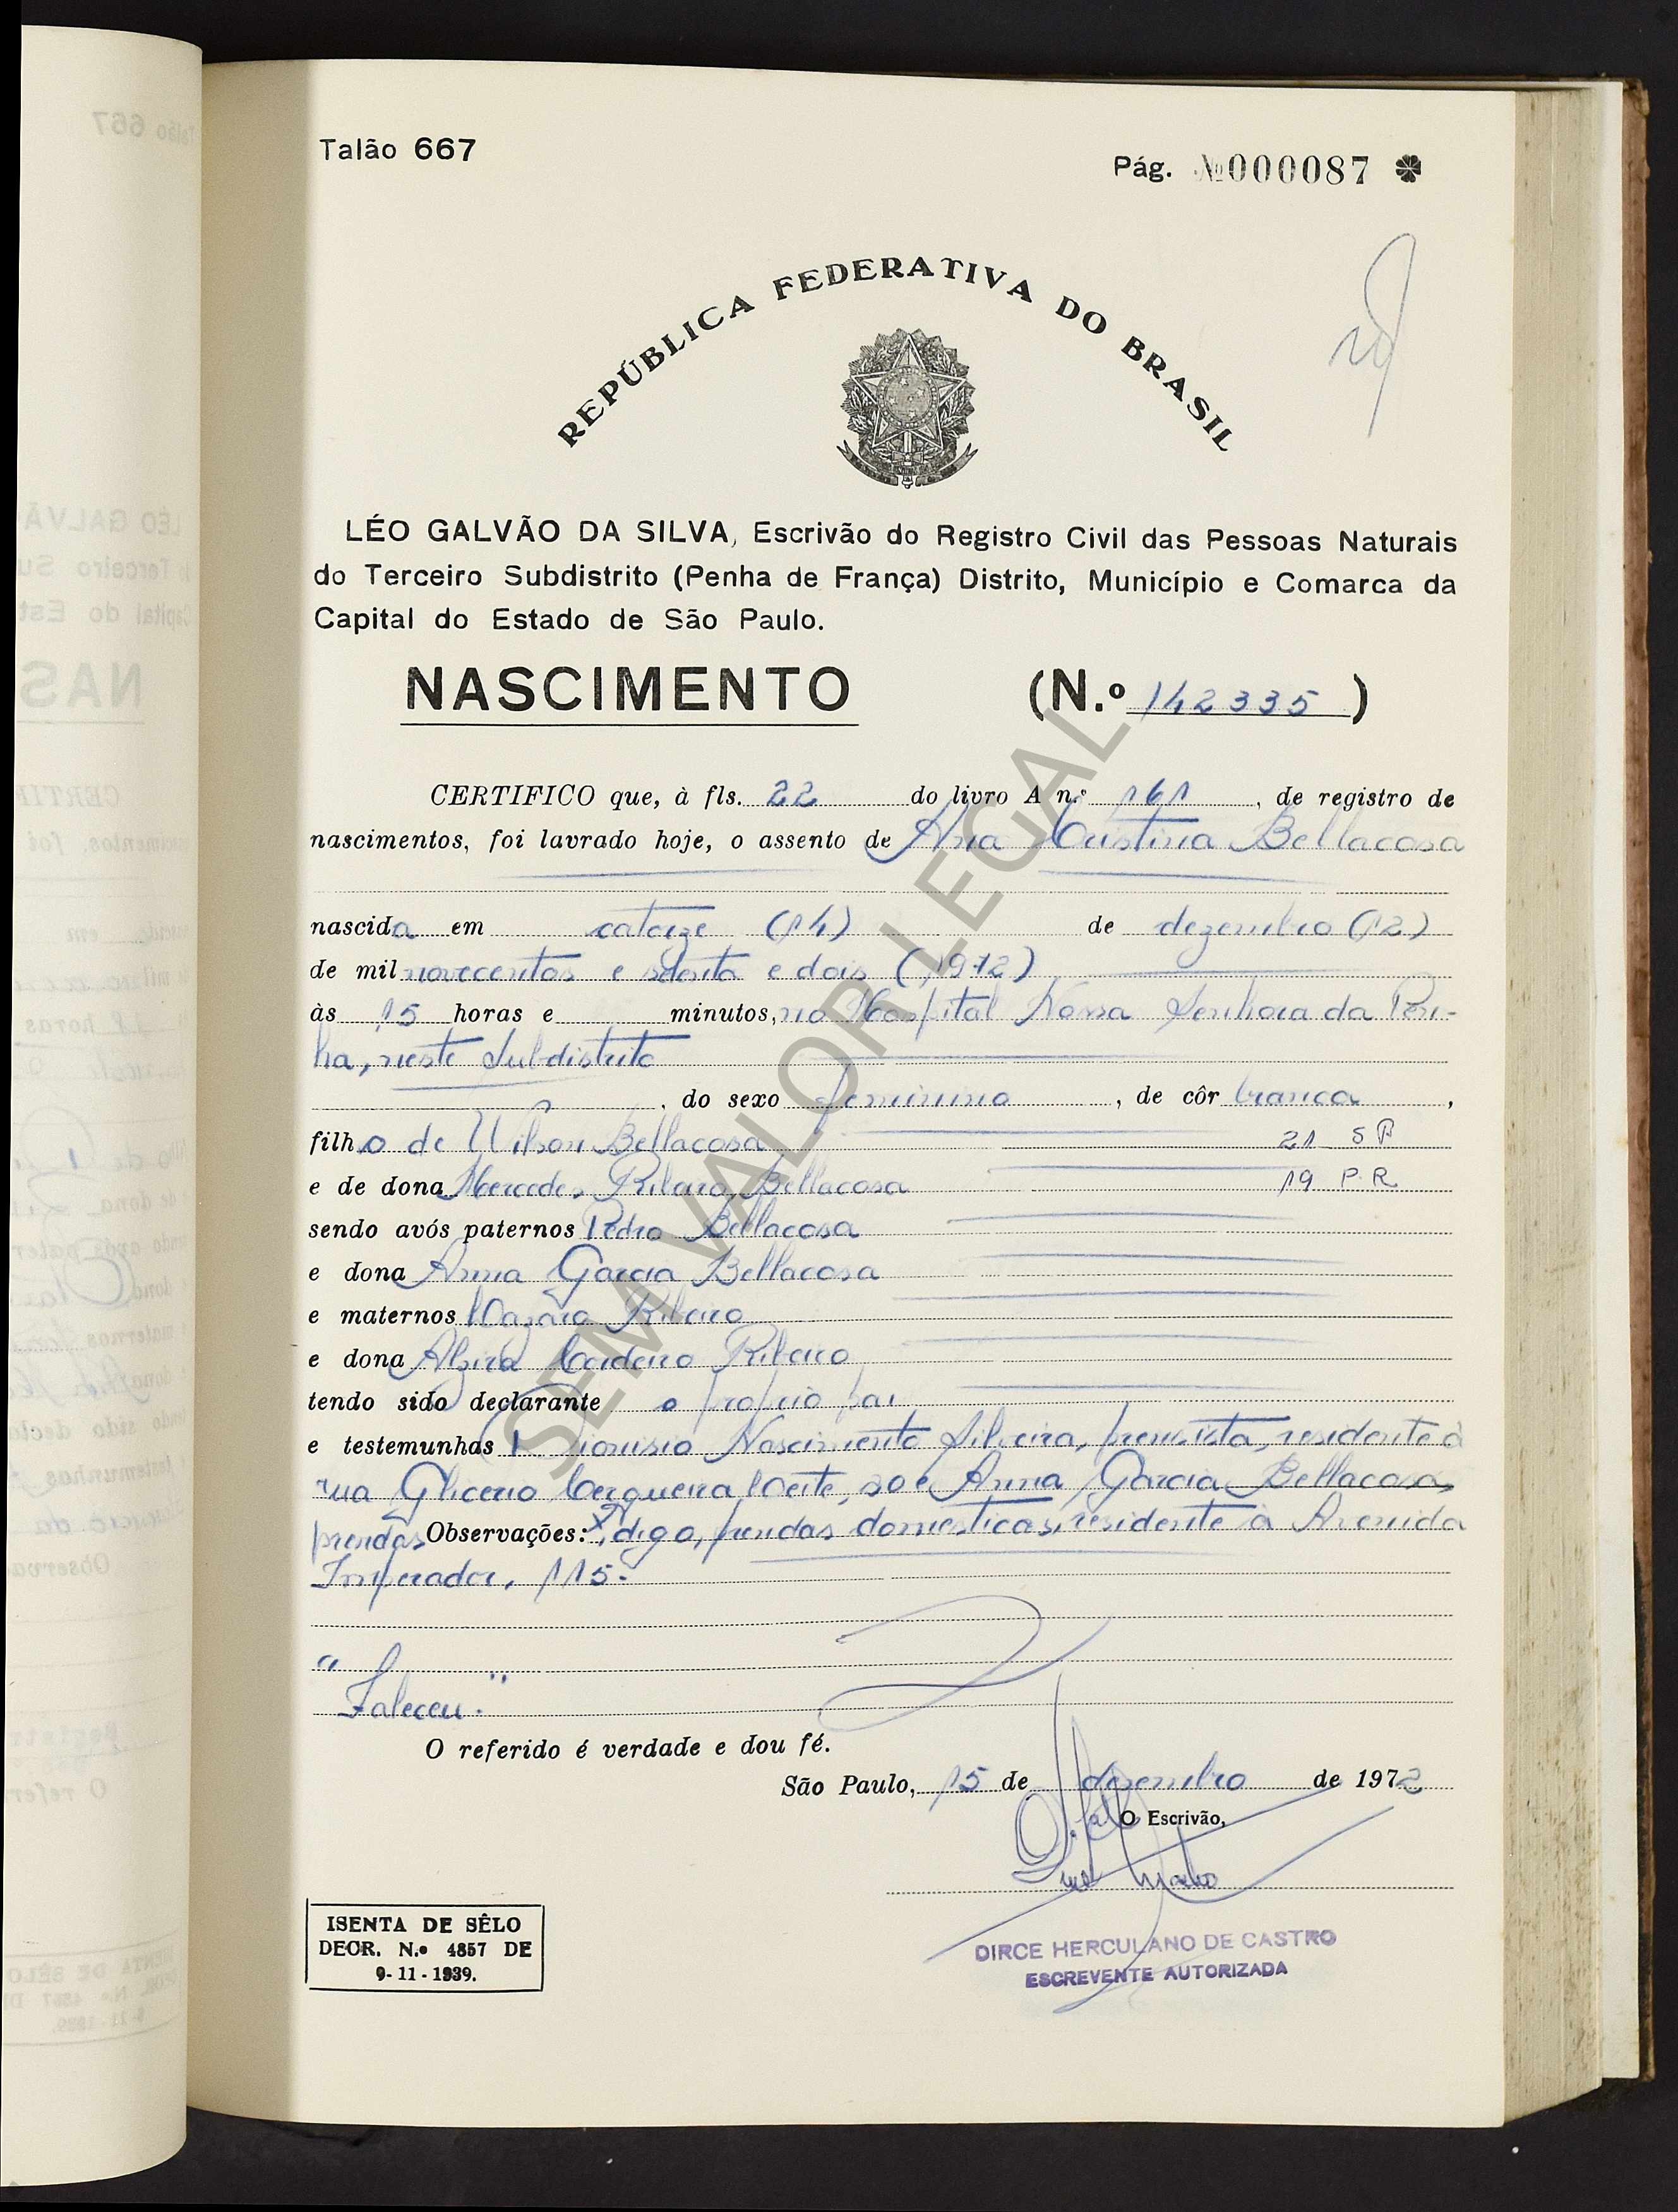 Talão 667
Pág. №000087
REPÚBLICA FEDERATIVA DO BRASIL
LÉO GALVÃO DA SILVA, Escrivão do Registro Civil das Pessoas Naturais
do Terceiro Subdistrito (Penha de França) Distrito, Município e Comarca da
Capital do Estado de São Paulo.
NASCIMENTO (N.º 142335)
CERTIFICO que, à fls. 22 do livro A n.º 161, de registro de
nascimentos, foi lavrado hoje, o assento de Ana Cristina Bellacosa
nascida em catorze (14) de dezembro (12)
de mil novecentos e setenta e dois (1972)
às 15 horas e minutos, no Hospital Nossa Senhora da Pen-
ha, neste Subdistrito
, do sexo feminino, de côr branca,
filho de Wilson Bellacosa 21 SP
e de dona Mercedes Ribeiro Bellacosa 19 P.R
sendo avós paternos Pedro Bellacosa
e dona Anna Garcia Bellacosa
e maternos Lazaro Ribeiro
e dona Alzira Cordeiro Ribeiro
tendo sido declarante o proprio pai
e testemunhas Dionisio Nascimento Silveira, prensista, residente à
rua Glicerio Cerqueira Leite, 20 e Anna Garcia Bellacosa,
prendas Observações: digo, prendas domesticas, residente à Avenida
Imperador, 115.
"Faleceu."
O referido é verdade e dou fé.
São Paulo, 15 de dezembro de 1972
O Escrivão,
DIRCE HERCULANO DE CASTRO
ESCREVENTE AUTORIZADA
ISENTA DE SÊLO
DECR. N.º 4857 DE
9-11-1939.
SEM VALOR LEGAL